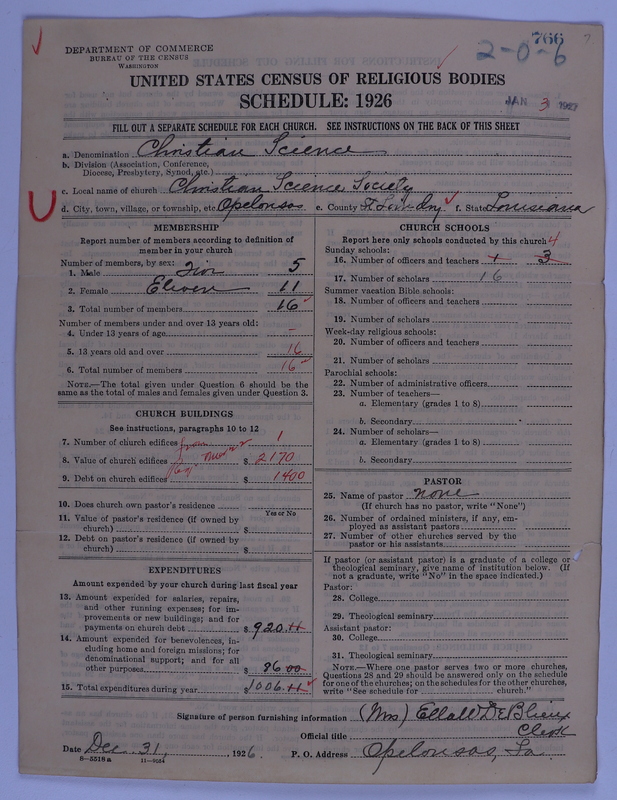 766
2-0-6
DEPARTMENT OF COMMERCE
BUREAU OF THE CENSUS
WASHINGTON
UNITED STATES CENSUS OF RELIGIOUS BODIES
SCHEDULE: 1926
JAN 3 1927
FILL OUT A SEPARATE SCHEDULE FOR EACH CHURCH. SEE INSTRUCTIONS ON THE BACK OF THIS SHEET
a. Denomination Christian Science
b. Division (Association, Conference, Diocese, Presbytery, Synod, etc.)
c. Local name of church Christian Science Society
d. City, town, village, or township, etc Opelousas e. County St Landry f. State Louisiana
MEMBERSHIP
Report number of members according to definition of
member in your church
Number of members, by sex:
1. Male Five 5
2. Female Eleven 11
3. Total number of members 16
Number of members under and over 13 years old:
4. Under 13 years of age –
5. 13 years old and over 16
6. Total number of members 16
NOTE.—The total given under Question 6 should be the
same as the total of males and females given under Question 3.
CHURCH BUILDINGS
See instructions, paragraphs 10 to 12
7. Number of church edifices 1
from
8. Value of church edifices $ 2170
9. Debt on church edifices $ 1400
10. Does church own pastor's residence
Yes or No
11. Value of pastor's residence (if owned by
church) $
12. Debt on pastor's residence (if owned by
church) $
EXPENDITURES
Amount expended by your church during last fiscal year
13. Amount expended for salaries, repairs,
and other running expenses; for im-
provements or new buildings; and for
payments on church debt $ 920.11
14. Amount expended for benevolences, in-
cluding home and foreign missions; for
denominational support; and for all
other purposes $ 86 00
15. Total expenditures during year $ 1006.11
CHURCH SCHOOLS
Report here only schools conducted by this church
Sunday schools: 4
16. Number of officers and teachers 3
17. Number of scholars 16
Summer vacation Bible schools:
18. Number of officers and teachers
19. Number of scholars
Week-day religious schools:
20. Number of officers and teachers
21. Number of scholars
Parochial schools:
22. Number of administrative officers
23. Number of teachers—
a. Elementary (grades 1 to 8)
b. Secondary
24. Number of scholars—
a. Elementary (grades 1 to 8)
b. Secondary
PASTOR
25. Name of pastor none
(If church has no pastor, write "None")
26. Number of ordained ministers, if any, em-
ployed as assistant pastors
27. Number of other churches served by the
pastor or his assistants
If pastor (or assistant pastor) is a graduate of a college or
theological seminary, give name of institution below. (If
not a graduate, write "No" in the space indicated.)
Pastor:
28. College
29. Theological seminary
Assistant pastor:
30. College
31. Theological seminary
NOTE.—Where one pastor serves two or more churches,
Questions 28 and 29 should be answered only on the schedule
for one of the churches; on the schedules for the other churches,
write "See schedule for church."
Signature of person furnishing information (Mrs) Ella W DeBlieux
Official title Clerk
Date Dec. 31, 1926. P. O. Address Opelousas, La.
8—5518a 11—9154